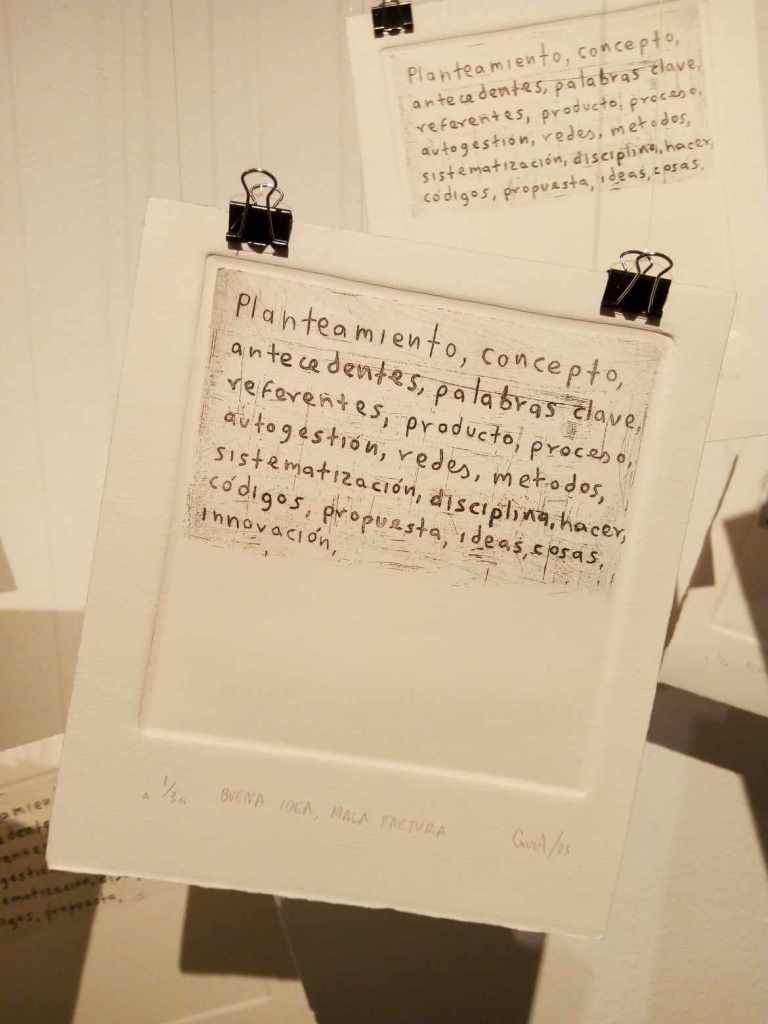 Planteamiento, concepto,
antecedentes, palabras clave,
referentes, producto, proceso,
autogestión, redes, metodos,
sistematización, disciplina, hacer,
códigos, propuesta, ideas, cosas,
Planteamiento, concepto,
antecedentes, palabras clave,
referentes, producto, proceso,
autogestión, redes, metodos,
sistematización, disciplina, hacer,
códigos, propuesta, ideas, cosas,
innovación,
1/3 BUENA IDEA, MALA FACTURA
propuesta,